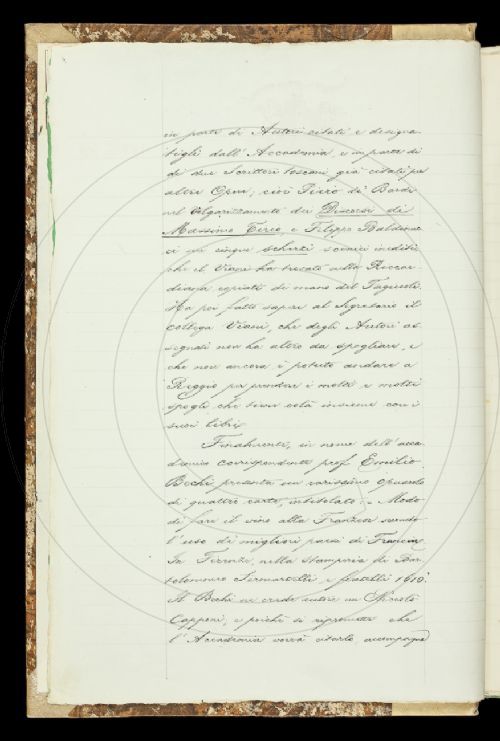 in parte di Autori citati e designa-
tigli dall' Accademia, e in parte di
di due Scrittori toscani già citati per
altre Opere; cioè Piero de' Bardi
nel Volgarizzamento dei Discorsi di
Massimo Tirio, e Filippo Baldinuc-
ci in cinque scherzi scenici inediti,
che il Viani ha trovato nella Riccar-
diana copiati di mano del
Ha poi fatto sapere al Segretario il
collega Viani, che degli Autori as-
segnati non ha altro da spogliare, e
che non ancora è potuto andare a
Reggio per prendere i molti e molti
spogli che tiene colà insieme con i
suoi libri.
Finalmente, in nome dell' acca-
demico corrispondente prof. Emilio
Bechi presenta un rarissimo opuscolo
di quattro carte, intitolato: - Modo
di fare il vino alla Franzese secondo
l' uso di migliori paesi di Francia.
In Firenze, nella stamperia di Bar-
tolommeo Sermartelli e fratelli 1610.
Il Bechi ne crede autore un Niccolò
Capponi, e poichè si ripromette che
l' Accademia vorrà citarlo, accompagna